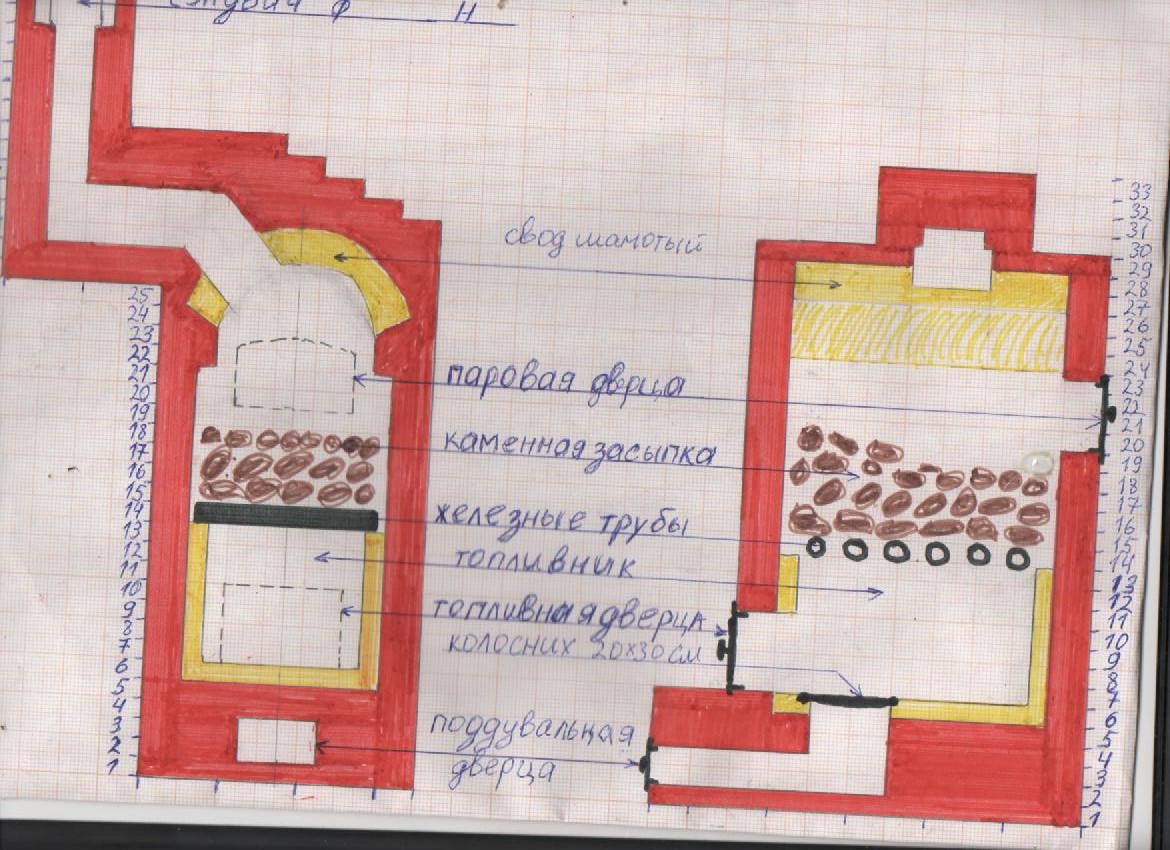 Н
свод шамотый
паровая дврца
каменная засыпка
железные трубы
топливник
топливная дверца
колосних 20х30см
поддувальная
дверца
25
24
23
22
21
20
19
18
17
16
15
14
13
12
11
10
9
8
7
6
5
4
3
2
1
33
32
31
30
29
28
27
26
25
24
23
22
21
20
19
18
17
16
15
14
13
12
11
10
9
8
7
6
5
4
3
2
1